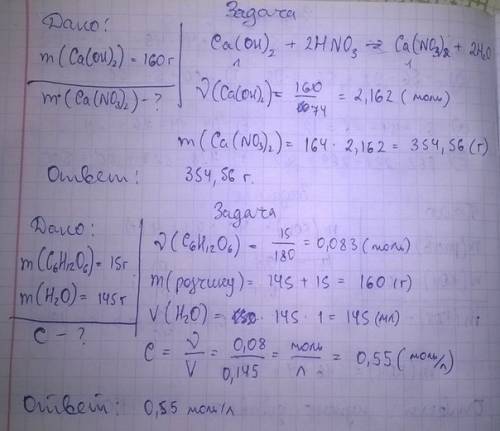 Задача
Дано:
m(Ca(OH)₂) = 160 г
m(Ca(NO₃)₂) - ?
Ca(OH)₂ + 2HNO₃ ⇒ Ca(NO₃)₂ + 2H₂O
1 1
ν(Ca(OH)₂) = 160/74 = 2,162 (моль)
m(Ca(NO₃)₂) = 164 · 2,162 = 354,56 (г)
Ответ: 354,56 г.
Задача
Дано:
m(C₆H₁₂O₆) = 15г
m(H₂O) = 145г
C - ?
ν(C₆H₁₂O₆) = 15/180 = 0,083 (моль)
m(розчину) = 145 + 15 = 160 (г)
V(H₂O) = 145 · 1 = 145 (мл)
C = ν/V = 0,08/0,145 = моль/л = 0,55 (моль/л)
Ответ: 0,55 моль/л